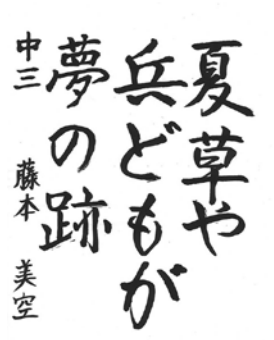 夏草や
兵どもが
夢の跡
中三 藤本 美空